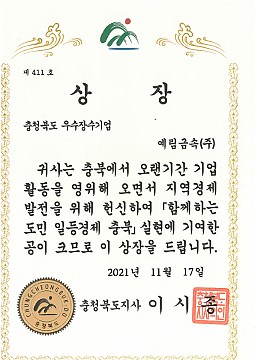 제 411 호
상 장
충청북도 우수장수기업
예림금속(주)
귀사는 충북에서 오랫기간 기업
활동을 영위해 오면서 지역경제
발전을 위해 헌신하여 「함께하는
도민 일등경제 충북」 실현에 기여한
공이 크므로 이 상장을 드립니다.
2021년 11월 17일
CHUNGCHEONGBUK-DO
충청북도
충청북도지사 이 시 종